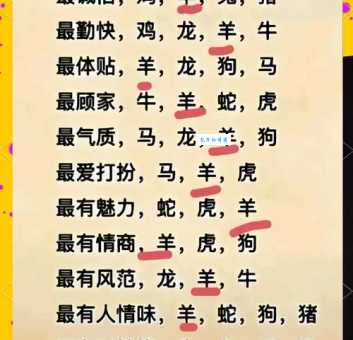 最勤快，鸡，龙，羊，牛
最体贴，羊，龙，狗，马
最顾家，牛，羊，蛇，虎
最气质，马，龙，羊，狗
最爱打扮，马，羊，虎
最有魅力，蛇，虎，羊
最有情商，羊，虎，狗
最有风范，龙，羊，牛
最有人情味，羊，蛇，狗，猪